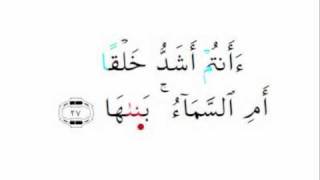 ءَأَنتُمۡ أَشَدُّ خَلۡقًا
أَمِ ٱلسَّمَآءُۚ بَنَىٰهَا ٢٧